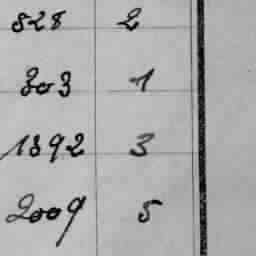 828 2
303 1
1392 3
2009 5